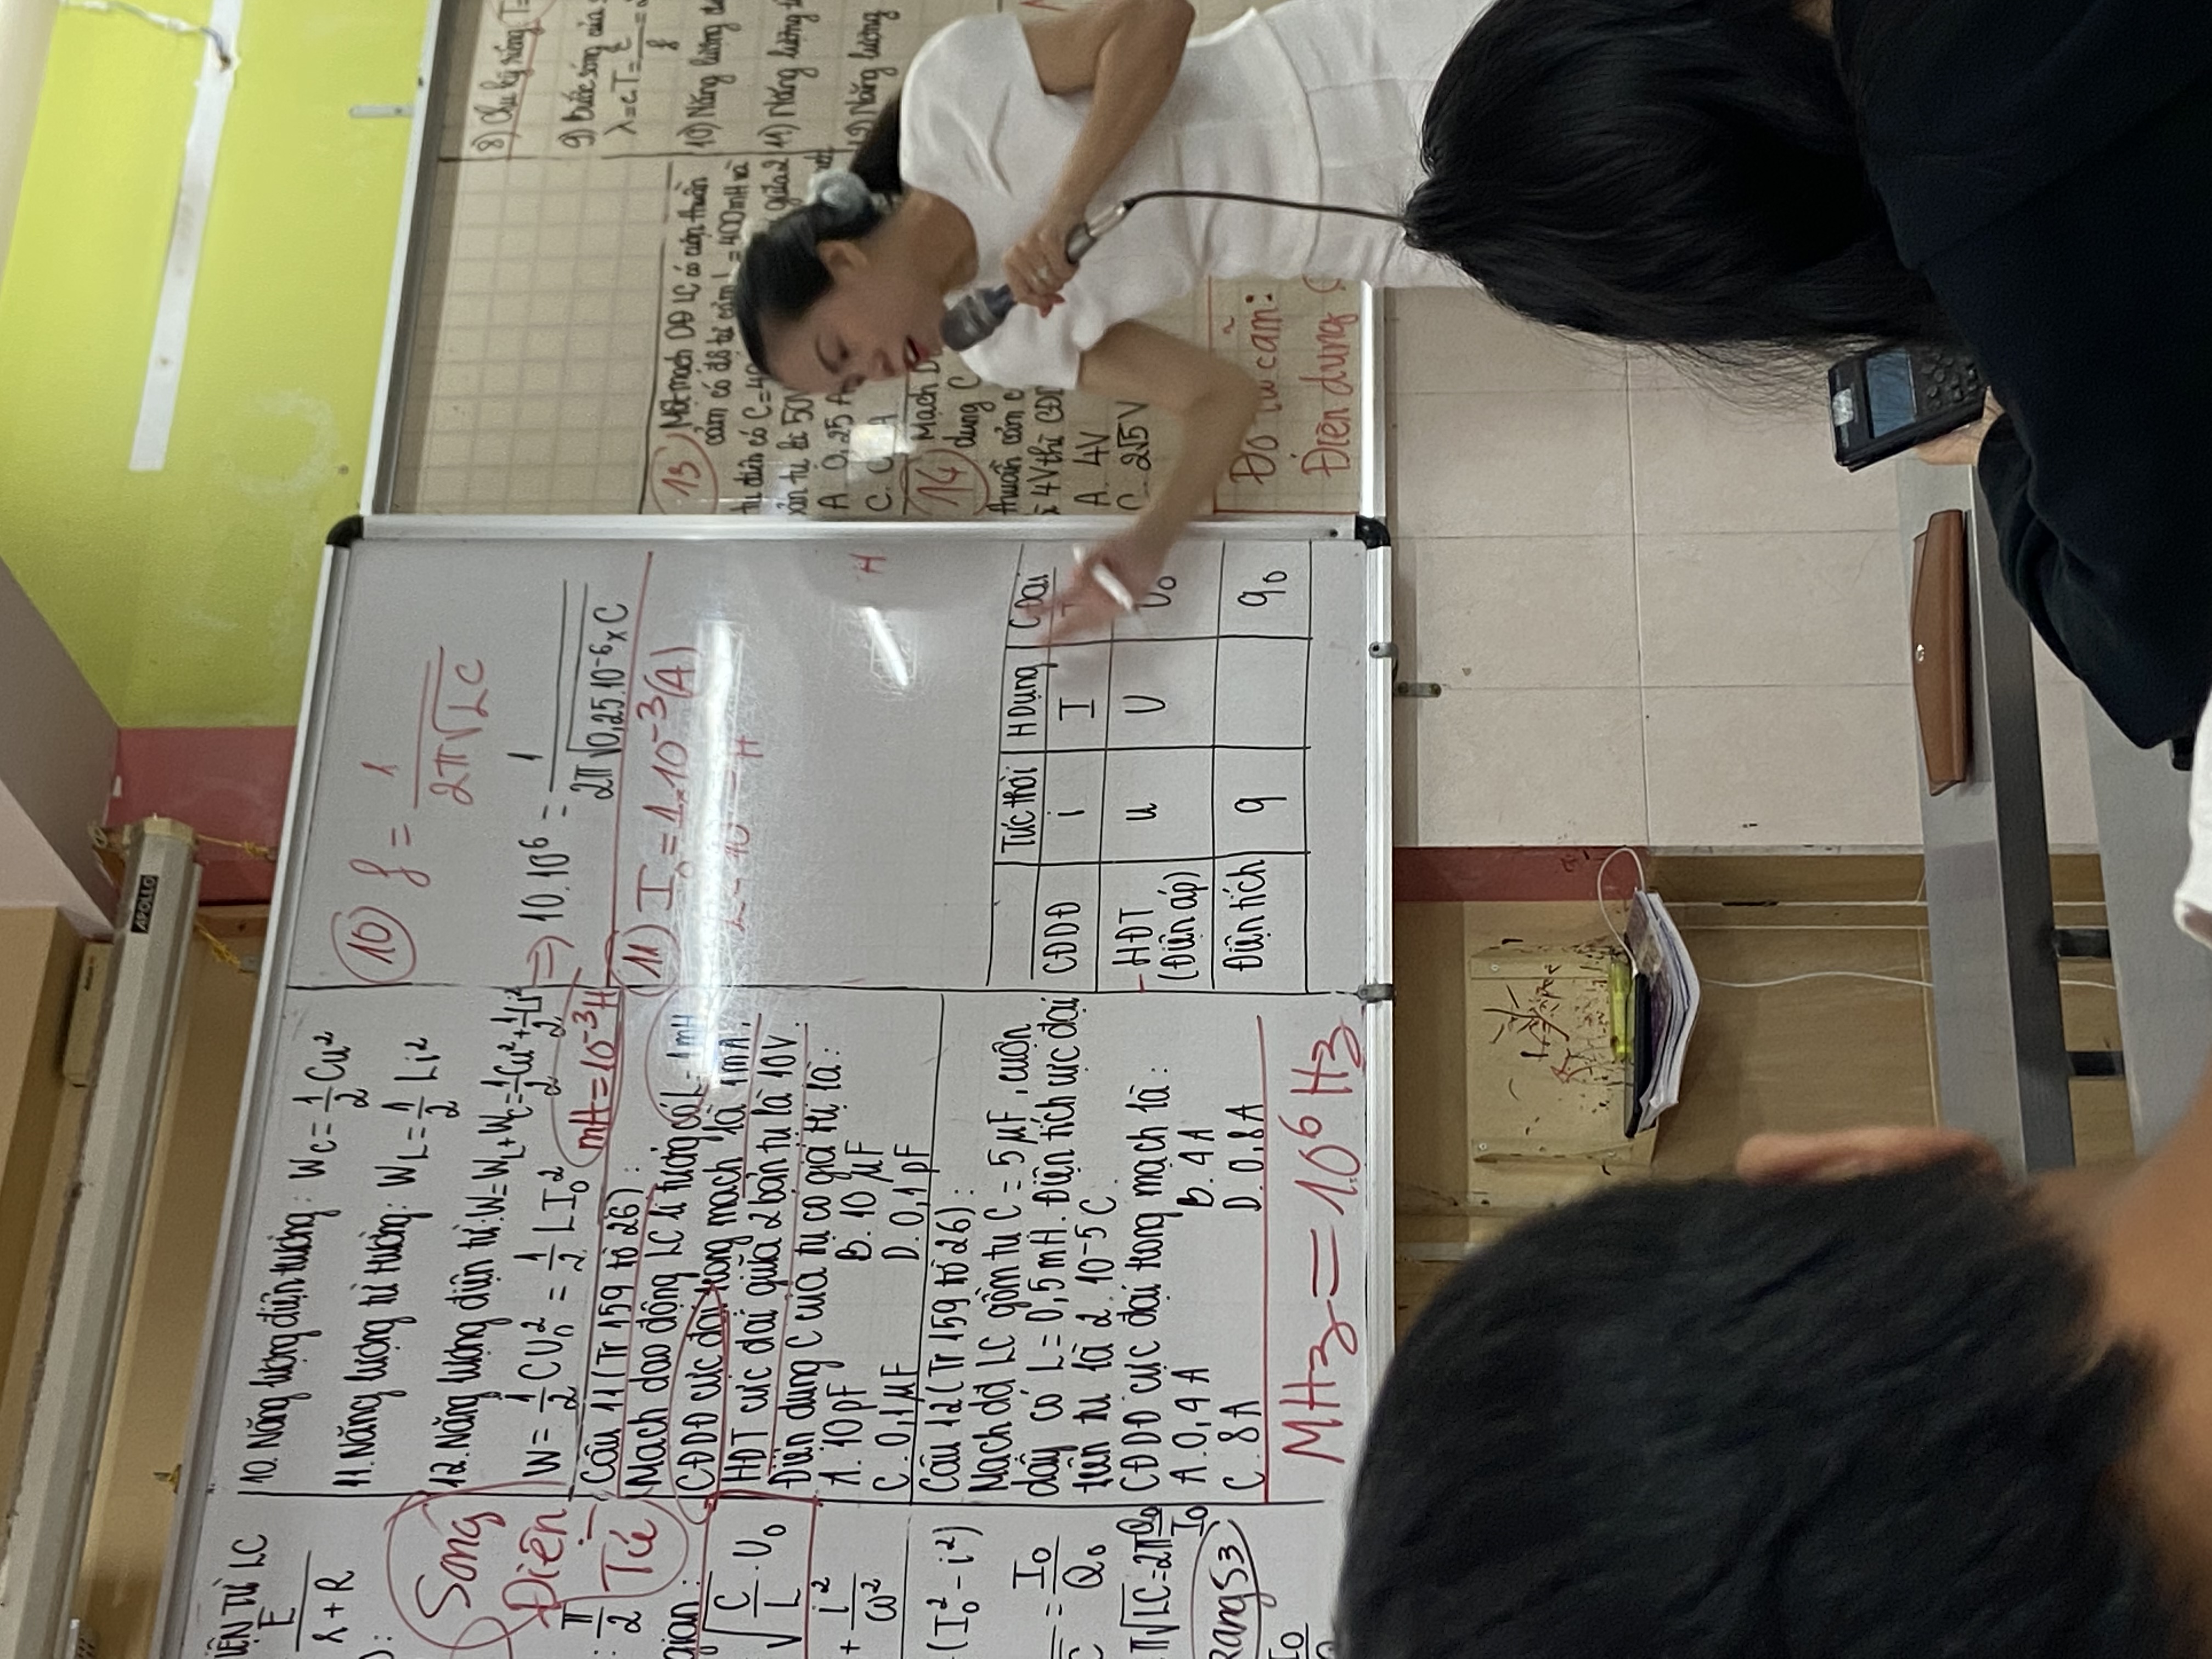 APOLLO
IỆN TỪ LC
E
r + R
Sóng
Điện
Từ
π
2
gian:
√C/L . U₀
+ i²/ω²
(I₀² - i²)
= I₀/Q₀
π√LC = 2π Q₀/I₀
I₀
10. Năng lượng điện trường: W_C = 1/2 Cu²
11. Năng lượng từ trường: W_L = 1/2 Li²
12. Năng lượng điện từ: W = W_L + W_C = 1/2 Cu² + 1/2 Li²
W = 1/2 CU₀² = 1/2 LI₀²
mH = 10⁻³H
Câu 11 (Tr 159 tờ 26):
Mạch dao động LC lí tưởng có L = 1mH
CĐDĐ cực đại trong mạch là 1mA.
HĐT cực đại giữa 2 bản tụ là 10V.
Điện dung C của tụ có giá trị là:
A. 10pF B. 10 μF
C. 0,1μF D. 0,1pF
Câu 12 (Tr 159 tờ 26):
Mạch dđ LC gồm tụ C = 5 μF, cuộn
dây có L = 0,5mH. Điện tích cực đại
trên tụ là 2. 10⁻⁵C.
CĐDĐ cực đại trong mạch là:
A. 0,4A B. 4A
C. 8A D. 0,8A
MHz = 10⁶ Hz
10 f = 1/2π√LC
⇒ 10.10⁶ = 1/2π√0,25.10⁻⁶ x C
11 I₀ = 1.10⁻³(A)
H
Tức thời H Dụng C Đại
CĐDĐ i I
HĐT u U U₀
(Điện áp)
Điện tích q q₀
13 Một mạch DĐ LC có cuộn thuần
cảm có độ tự cảm L = 400mH và
tụ điện có C=4
giữa 2
bản tụ là 50V
A. 0,25 A
C. A
14 Mạch
dung C
thuần cảm c
4V thì CĐD
A. 4V
C. 2√5 V
Độ tự cảm:
Điện dung
8) Chu kỳ riêng: T=
9) Bước sóng của
λ=c.T= c/f =
10) Năng lượng
11) Năng lượng
12) Năng lượng